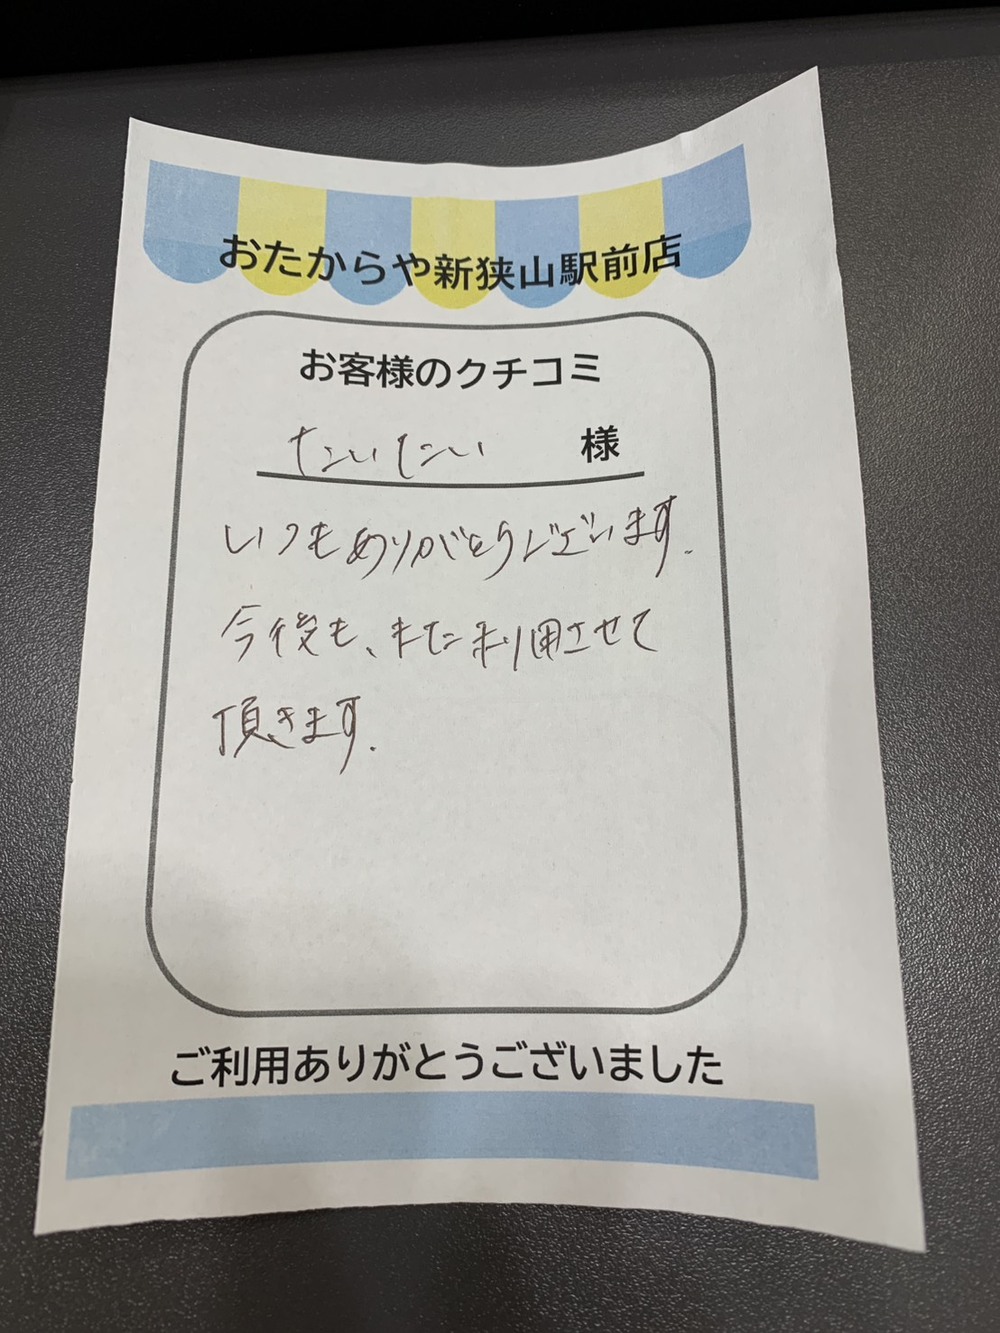 おたからや新狭山駅前店
お客様のクチコミ
たいたい 様
いつもありがとうございます.
今後も、また利用させて
頂きます.
ご利用ありがとうございました